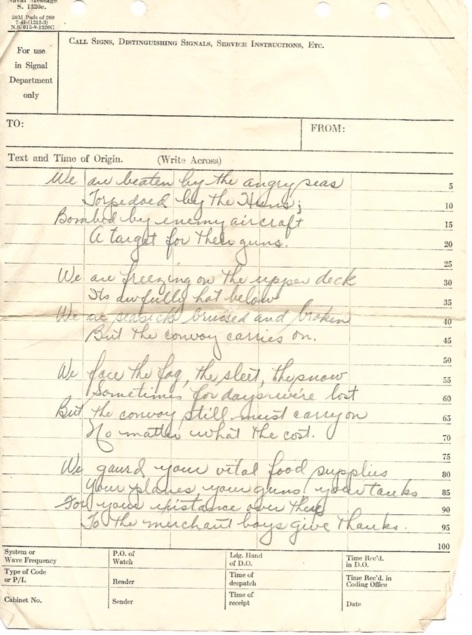 Naval Message
S. 1320c.
7-41 (1213-3)
For use
in Signal
Department
only
Call Signs, Distinguishing Signals, Service Instructions, Etc.
TO:
FROM:
Text and Time of Origin. (Write Across)
We are beaten by the angry seas 5
Torpedoed by the Huns; 10
Bombed by enemy aircraft 15
A target for their guns. 20
25
We are freezing on the upper deck 30
Its awfully hot below 35
We are seasick bruised and broken 40
But the convoy carries on. 45
50
We face the fog, the sleet, the snow 55
Sometimes for days we're lost 60
But the convoy still must carry on 65
No matter what the cost. 70
75
We gaurd your vital food supplies 80
Your planes your guns your tanks 85
For your existance over there 90
To the merchant boys give thanks. 95
100
System or
Wave Frequency
P.O. of
Watch
Ldg. Hand
of D.O.
Time Rec'd.
in D.O.
Type of Code
or P/L
Reader
Time of
despatch
Time Rec'd. in
Coding Office
Cabinet No.
Sender
Time of
receipt
Date